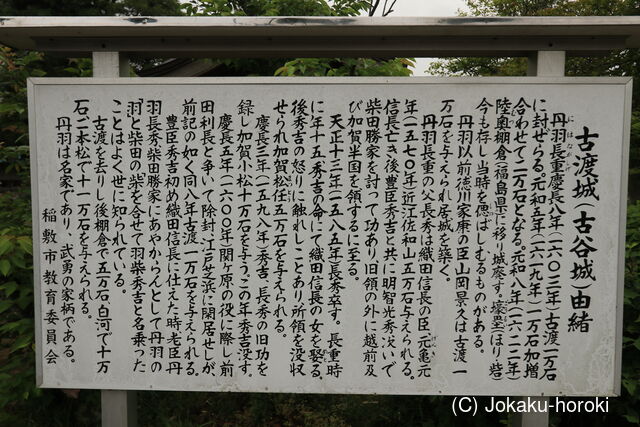 古渡城(古谷城)由緒
丹羽長重慶長八年(一六〇三年)古渡一万石
に封ぜらる。元和五年(一六一九年)一万石加増
合わせて二万石となる。元和八年(一六二二年)
陸奥棚倉(福島県)に移り城廃す。壕塁(ほり砦)
今も存し当時を偲ばしむるものがある。
丹羽以前徳川家康の臣山岡景久は古渡一
万石を与えられ居城を築く。
丹羽長重の父長秀は織田信長の臣元亀元
年(一五七〇年)近江佐和山五万石与えられる。
信長亡き後豊臣秀吉と共に明智光秀次いで
柴田勝家を討って功あり旧領の外に越前及
び加賀半国を領するに至る。
天正十三年(一五八五年)長秀卒す。長重時
に年十五秀吉の命にて織田信長の女を娶る。
後秀吉の怒りに触れしことあり所領を没収
せられ加賀松任五万石を与えられる。
慶長三年(一五九八年)秀吉、長秀の旧功を
録し加賀小松十万石を与う。この年秀吉没す。
慶長五年(一六〇〇年)関ヶ原の役に際し前
田利長と争いて除封、江戸芝浜に閑居せしが
前記の如く同八年古渡一万石を与えられる。
豊臣秀吉初め織田信長に仕えた時老臣丹
羽長秀柴田勝家にあやからんとして丹羽の
羽と柴田の柴を合せて羽柴秀吉と名乗った
ことはよく世に知られている。
古渡を去りし後棚倉で五万石、白河で十万
石、二本松で十一万石を与えられる。
丹羽は名家であり、武勇の家柄である。
稲敷市教育委員会
(C) Jokaku-horoki